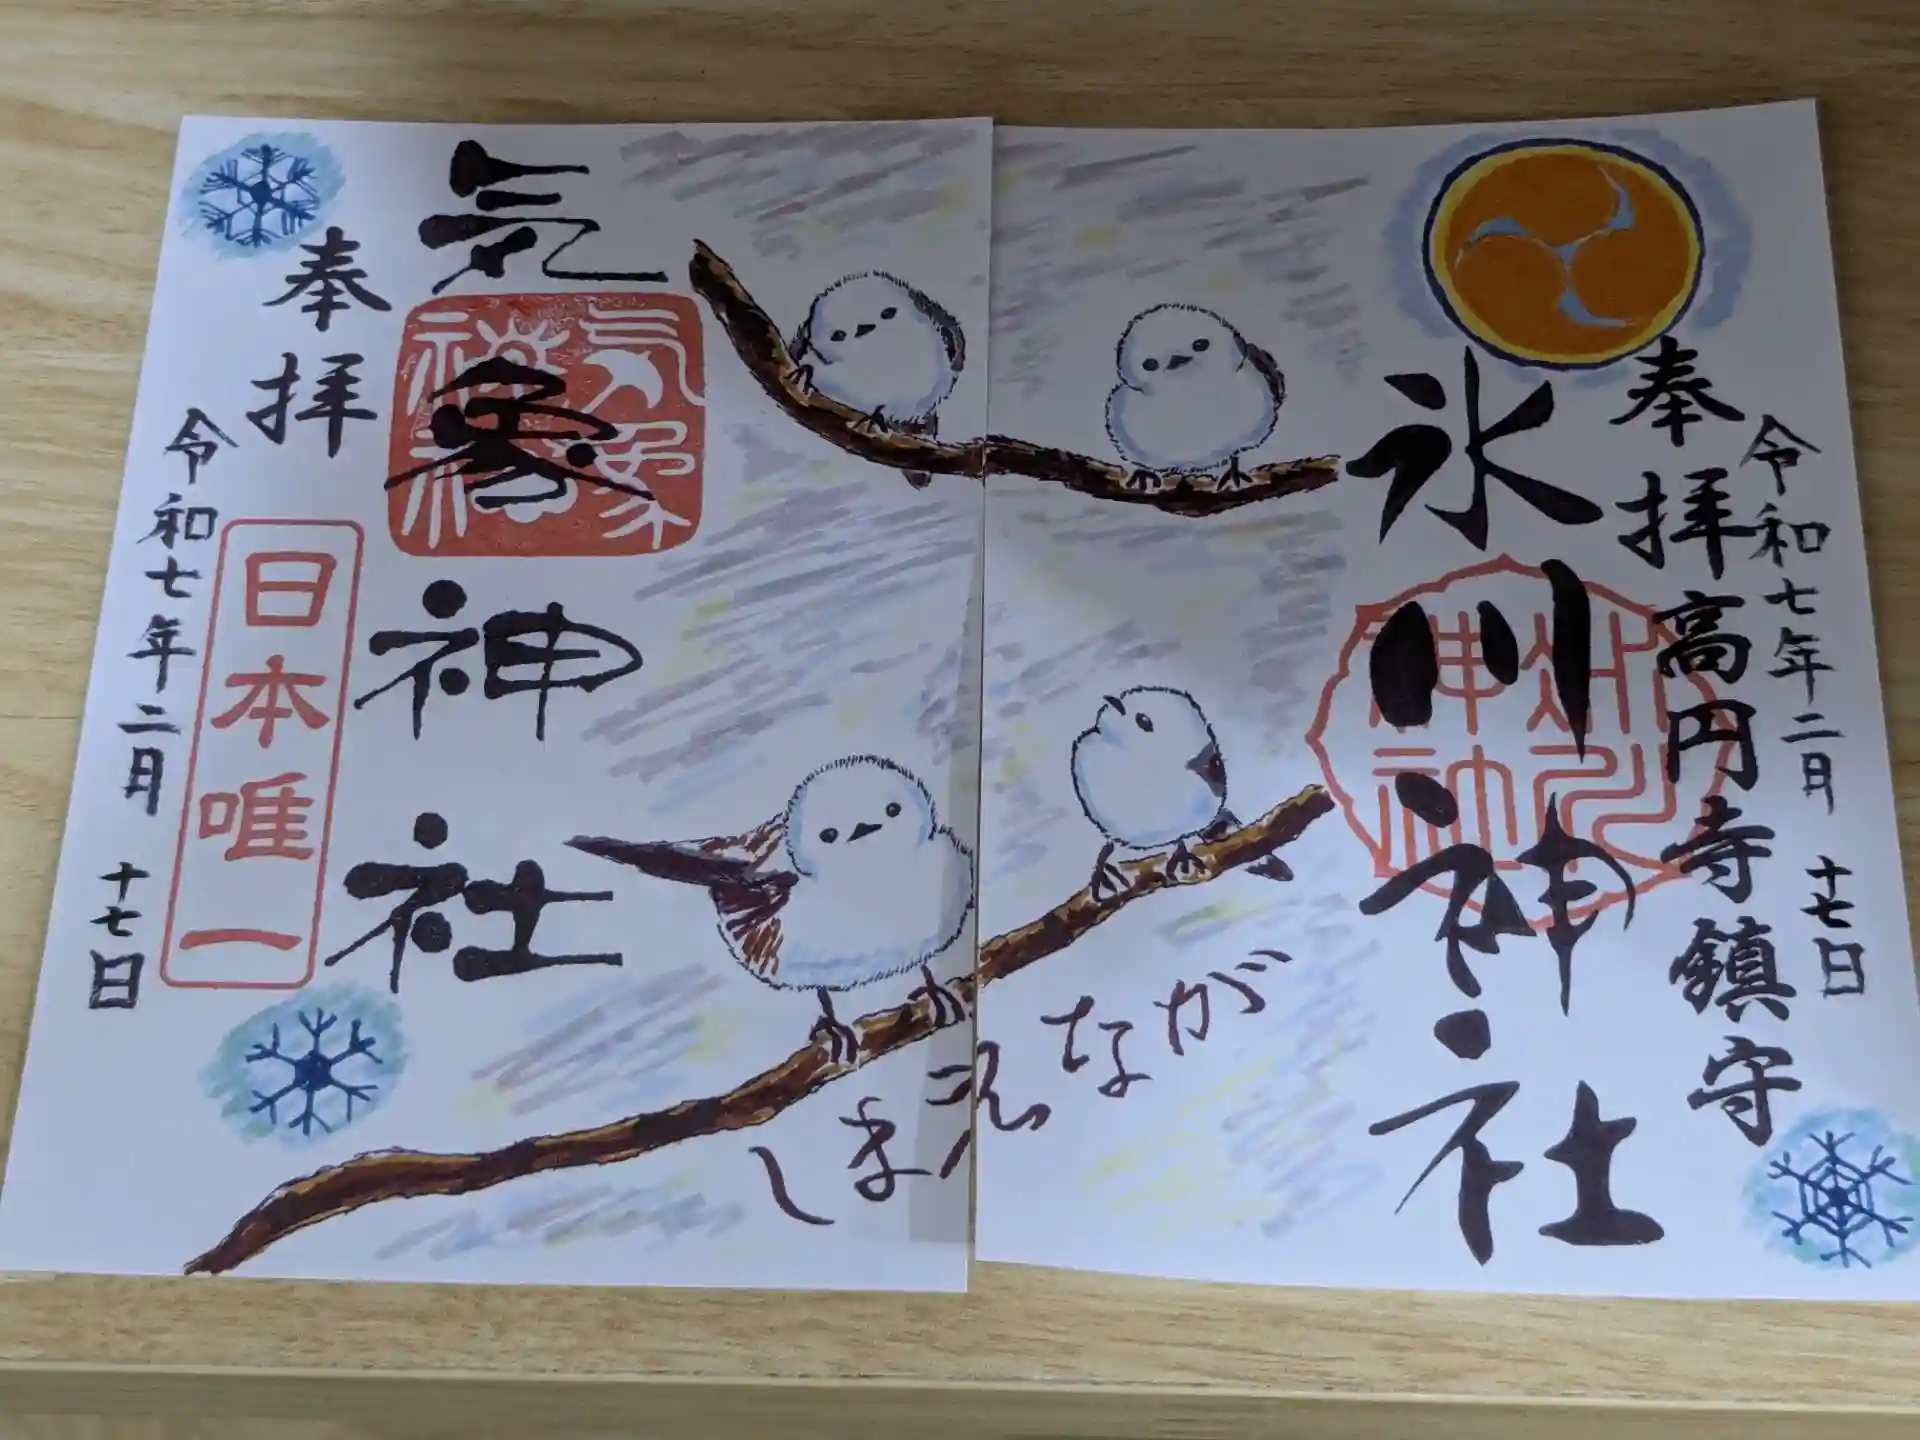 令和七年二月 十七日
奉拝
高円寺鎮守
氷川神社
氷川神社
しまえながが
氣象神社
気象神社
奉拝
日本唯一
令和七年二月 十七日